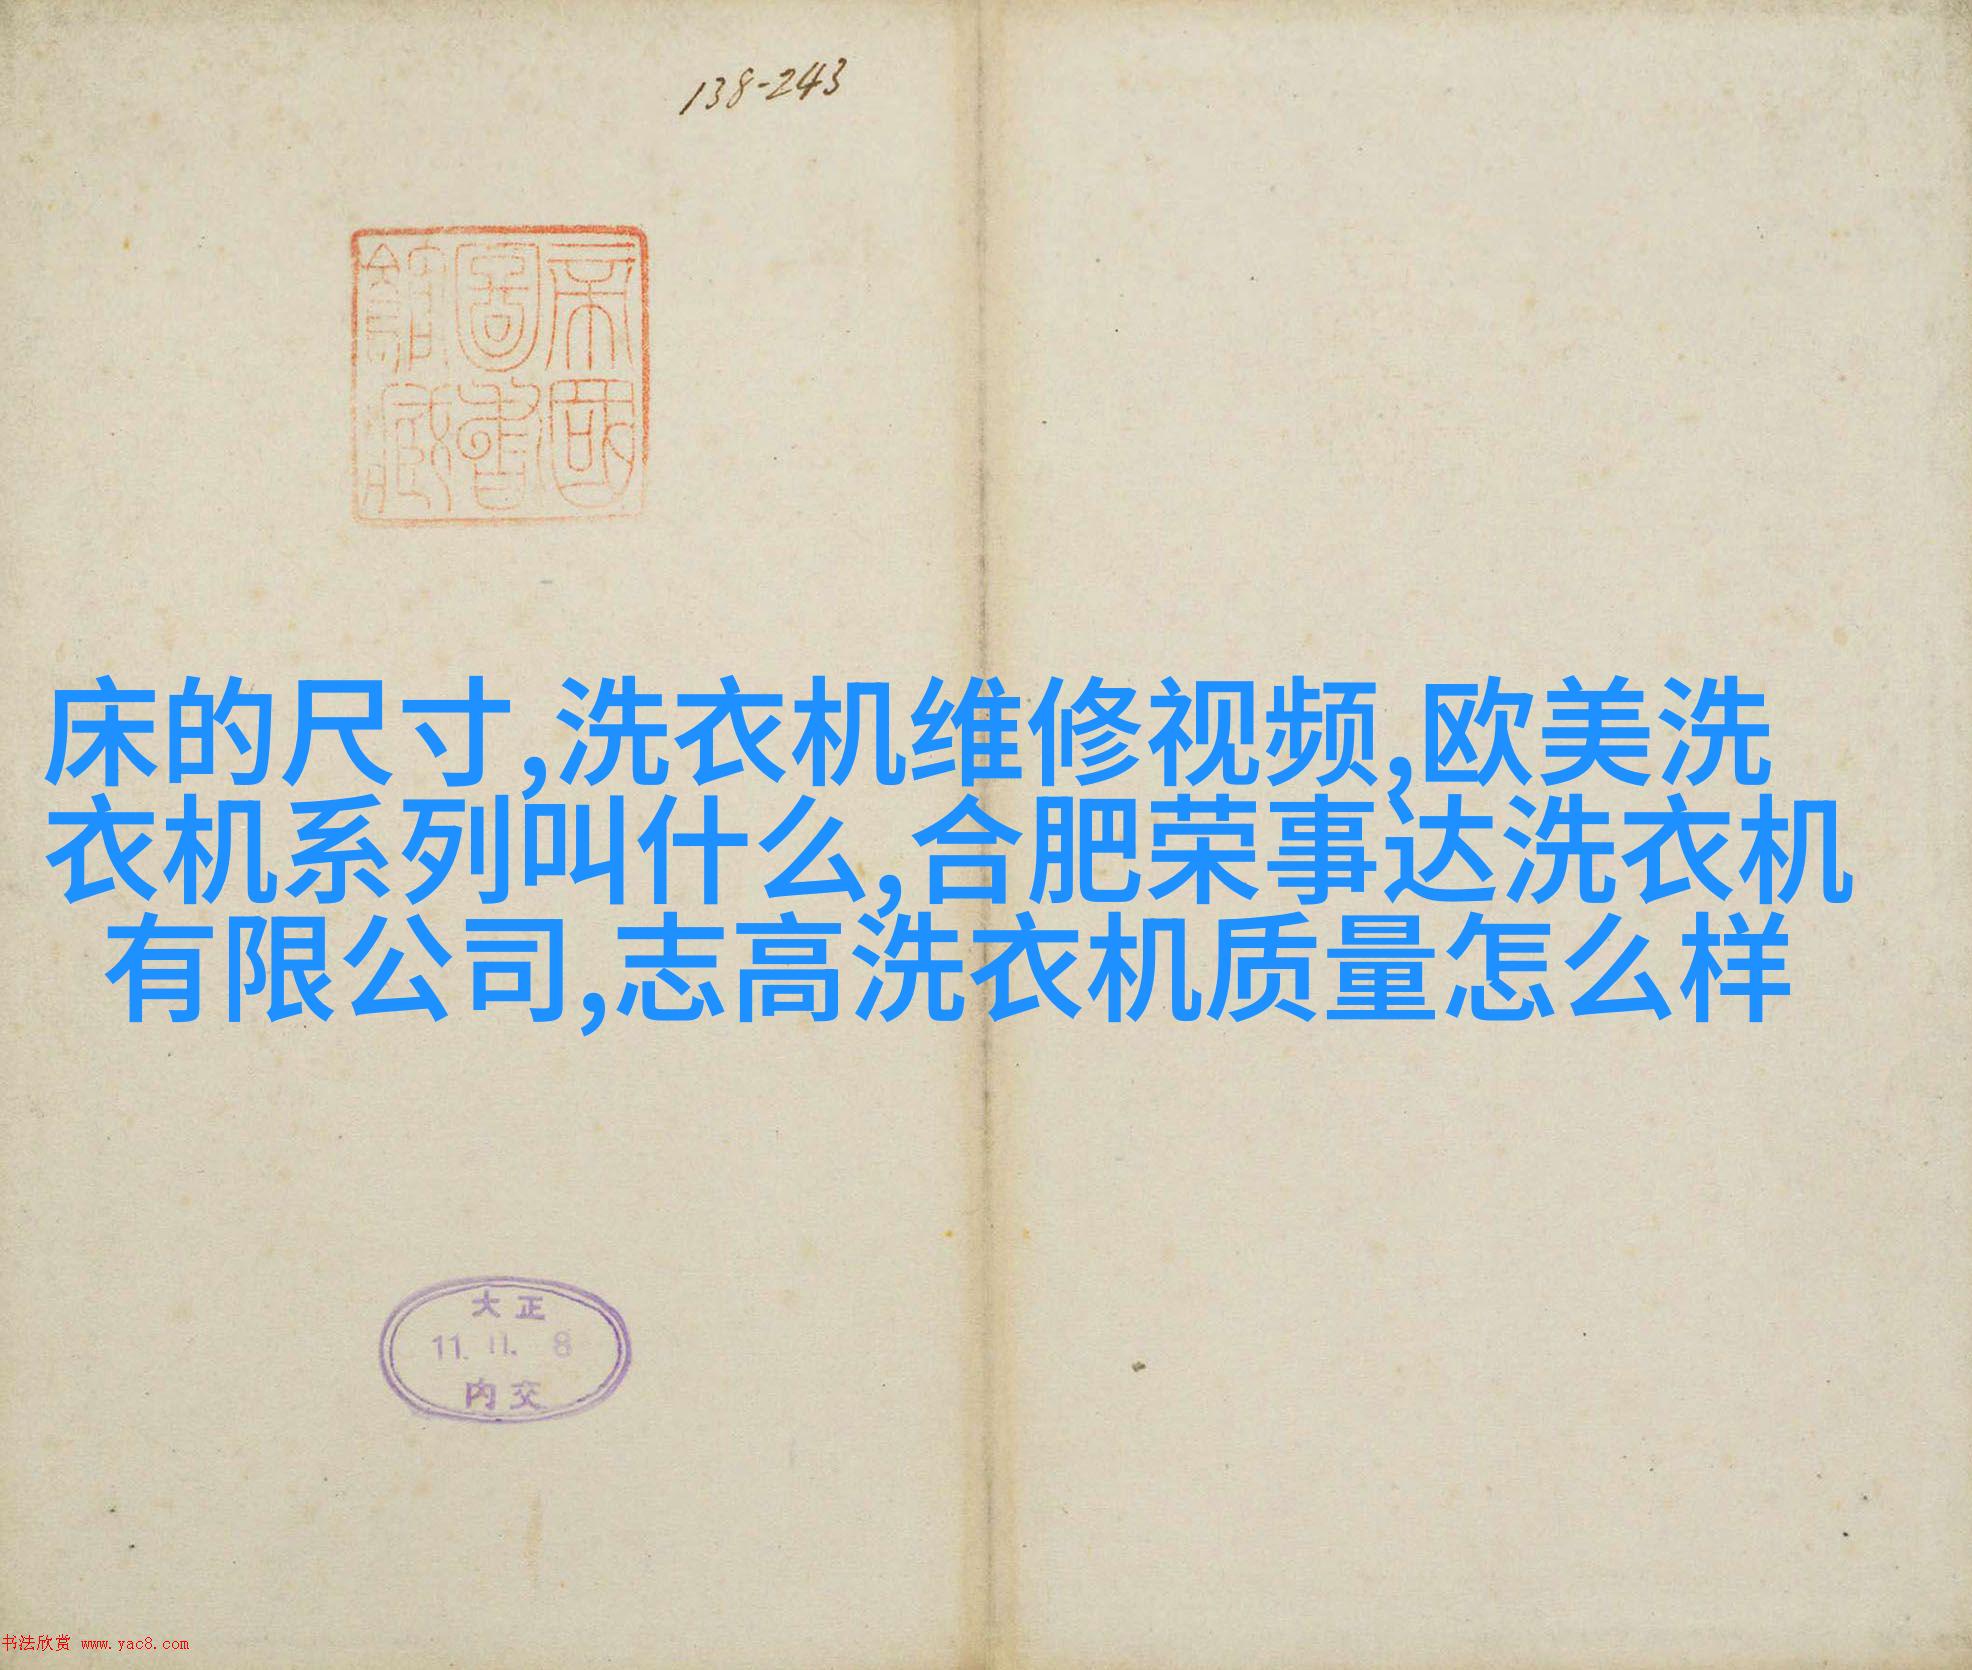 138-243
帝國
圖書
館藏
床的尺寸,洗衣机维修视频,欧美洗
衣机系列叫什么,合肥荣事达洗衣机
有限公司,志高洗衣机质量怎么样
大正
11. 11. 8
内交
书法欣赏 www.yac8.com